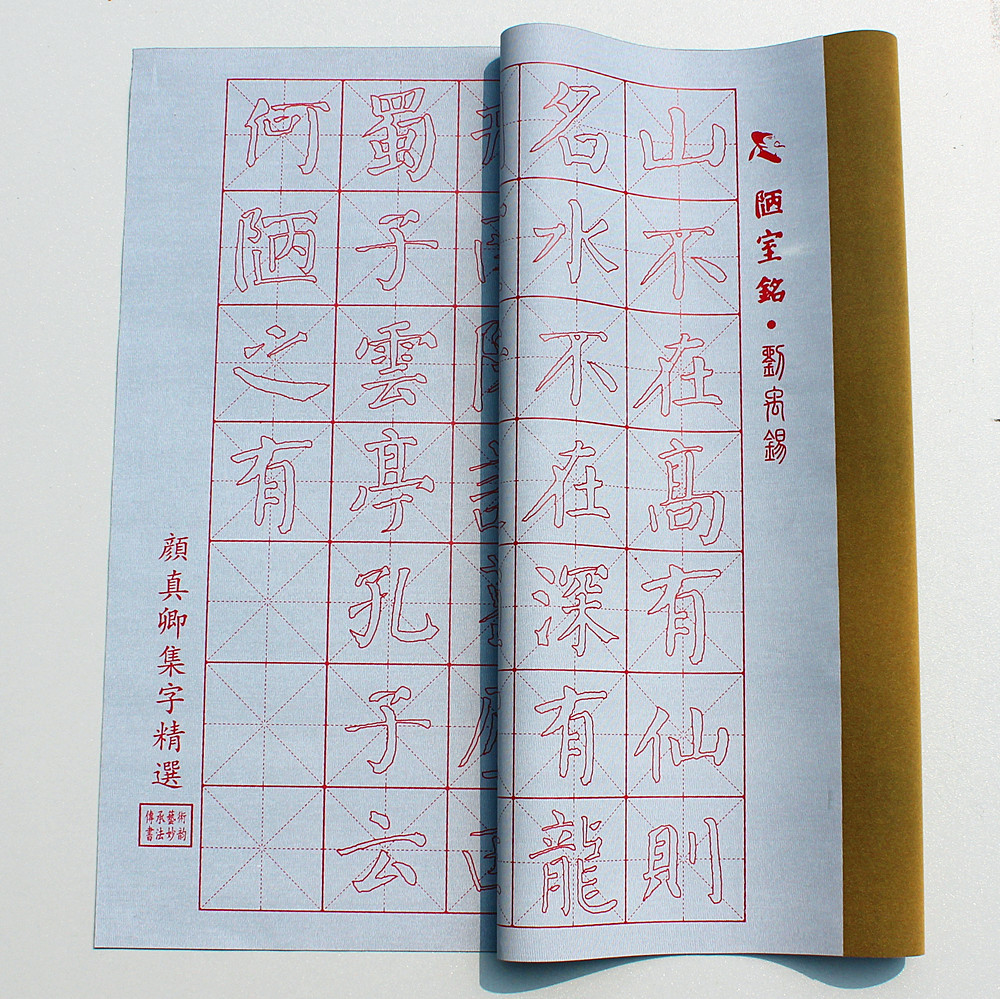 陋室銘·劉禹錫
山不在高有仙則
名水不在深有龍
蜀子雲亭孔子云
何陋之有
顔真卿集字精選
傳承藝術
書法妙韵